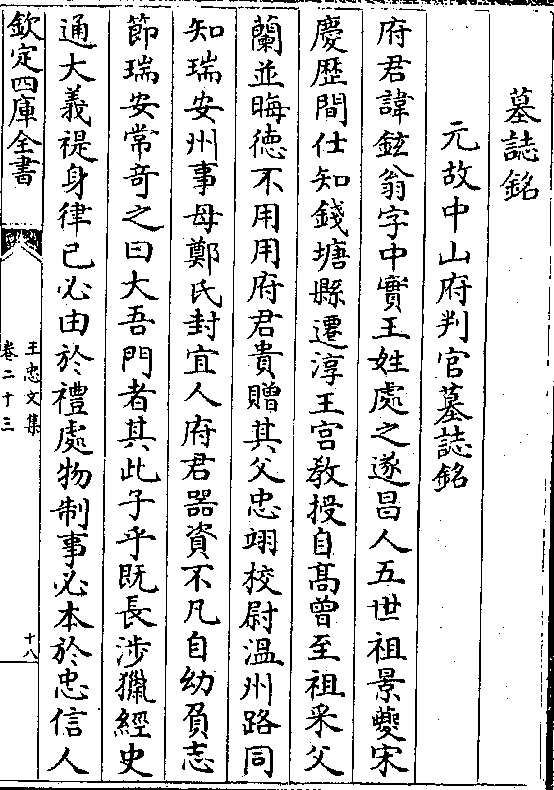 墓誌銘
元故中山府判官墓誌銘
府君諱鉉翁字中實王姓處之遂昌人五世祖景夔宋
慶歴間仕知錢塘縣遷淳王宫敎授自髙曾至祖采父
蘭並晦德不用用府君貴贈其父忠翊校尉温州路同
知瑞安州事母鄭氏封宜人府君器資不凡自幼負志
節瑞安常竒之曰大吾門者其此子乎既長涉獵經史
通大義禔身律己必由於禮處物制事必本於忠信人
欽定四庫全書
王忠文集
卷二十三
十八